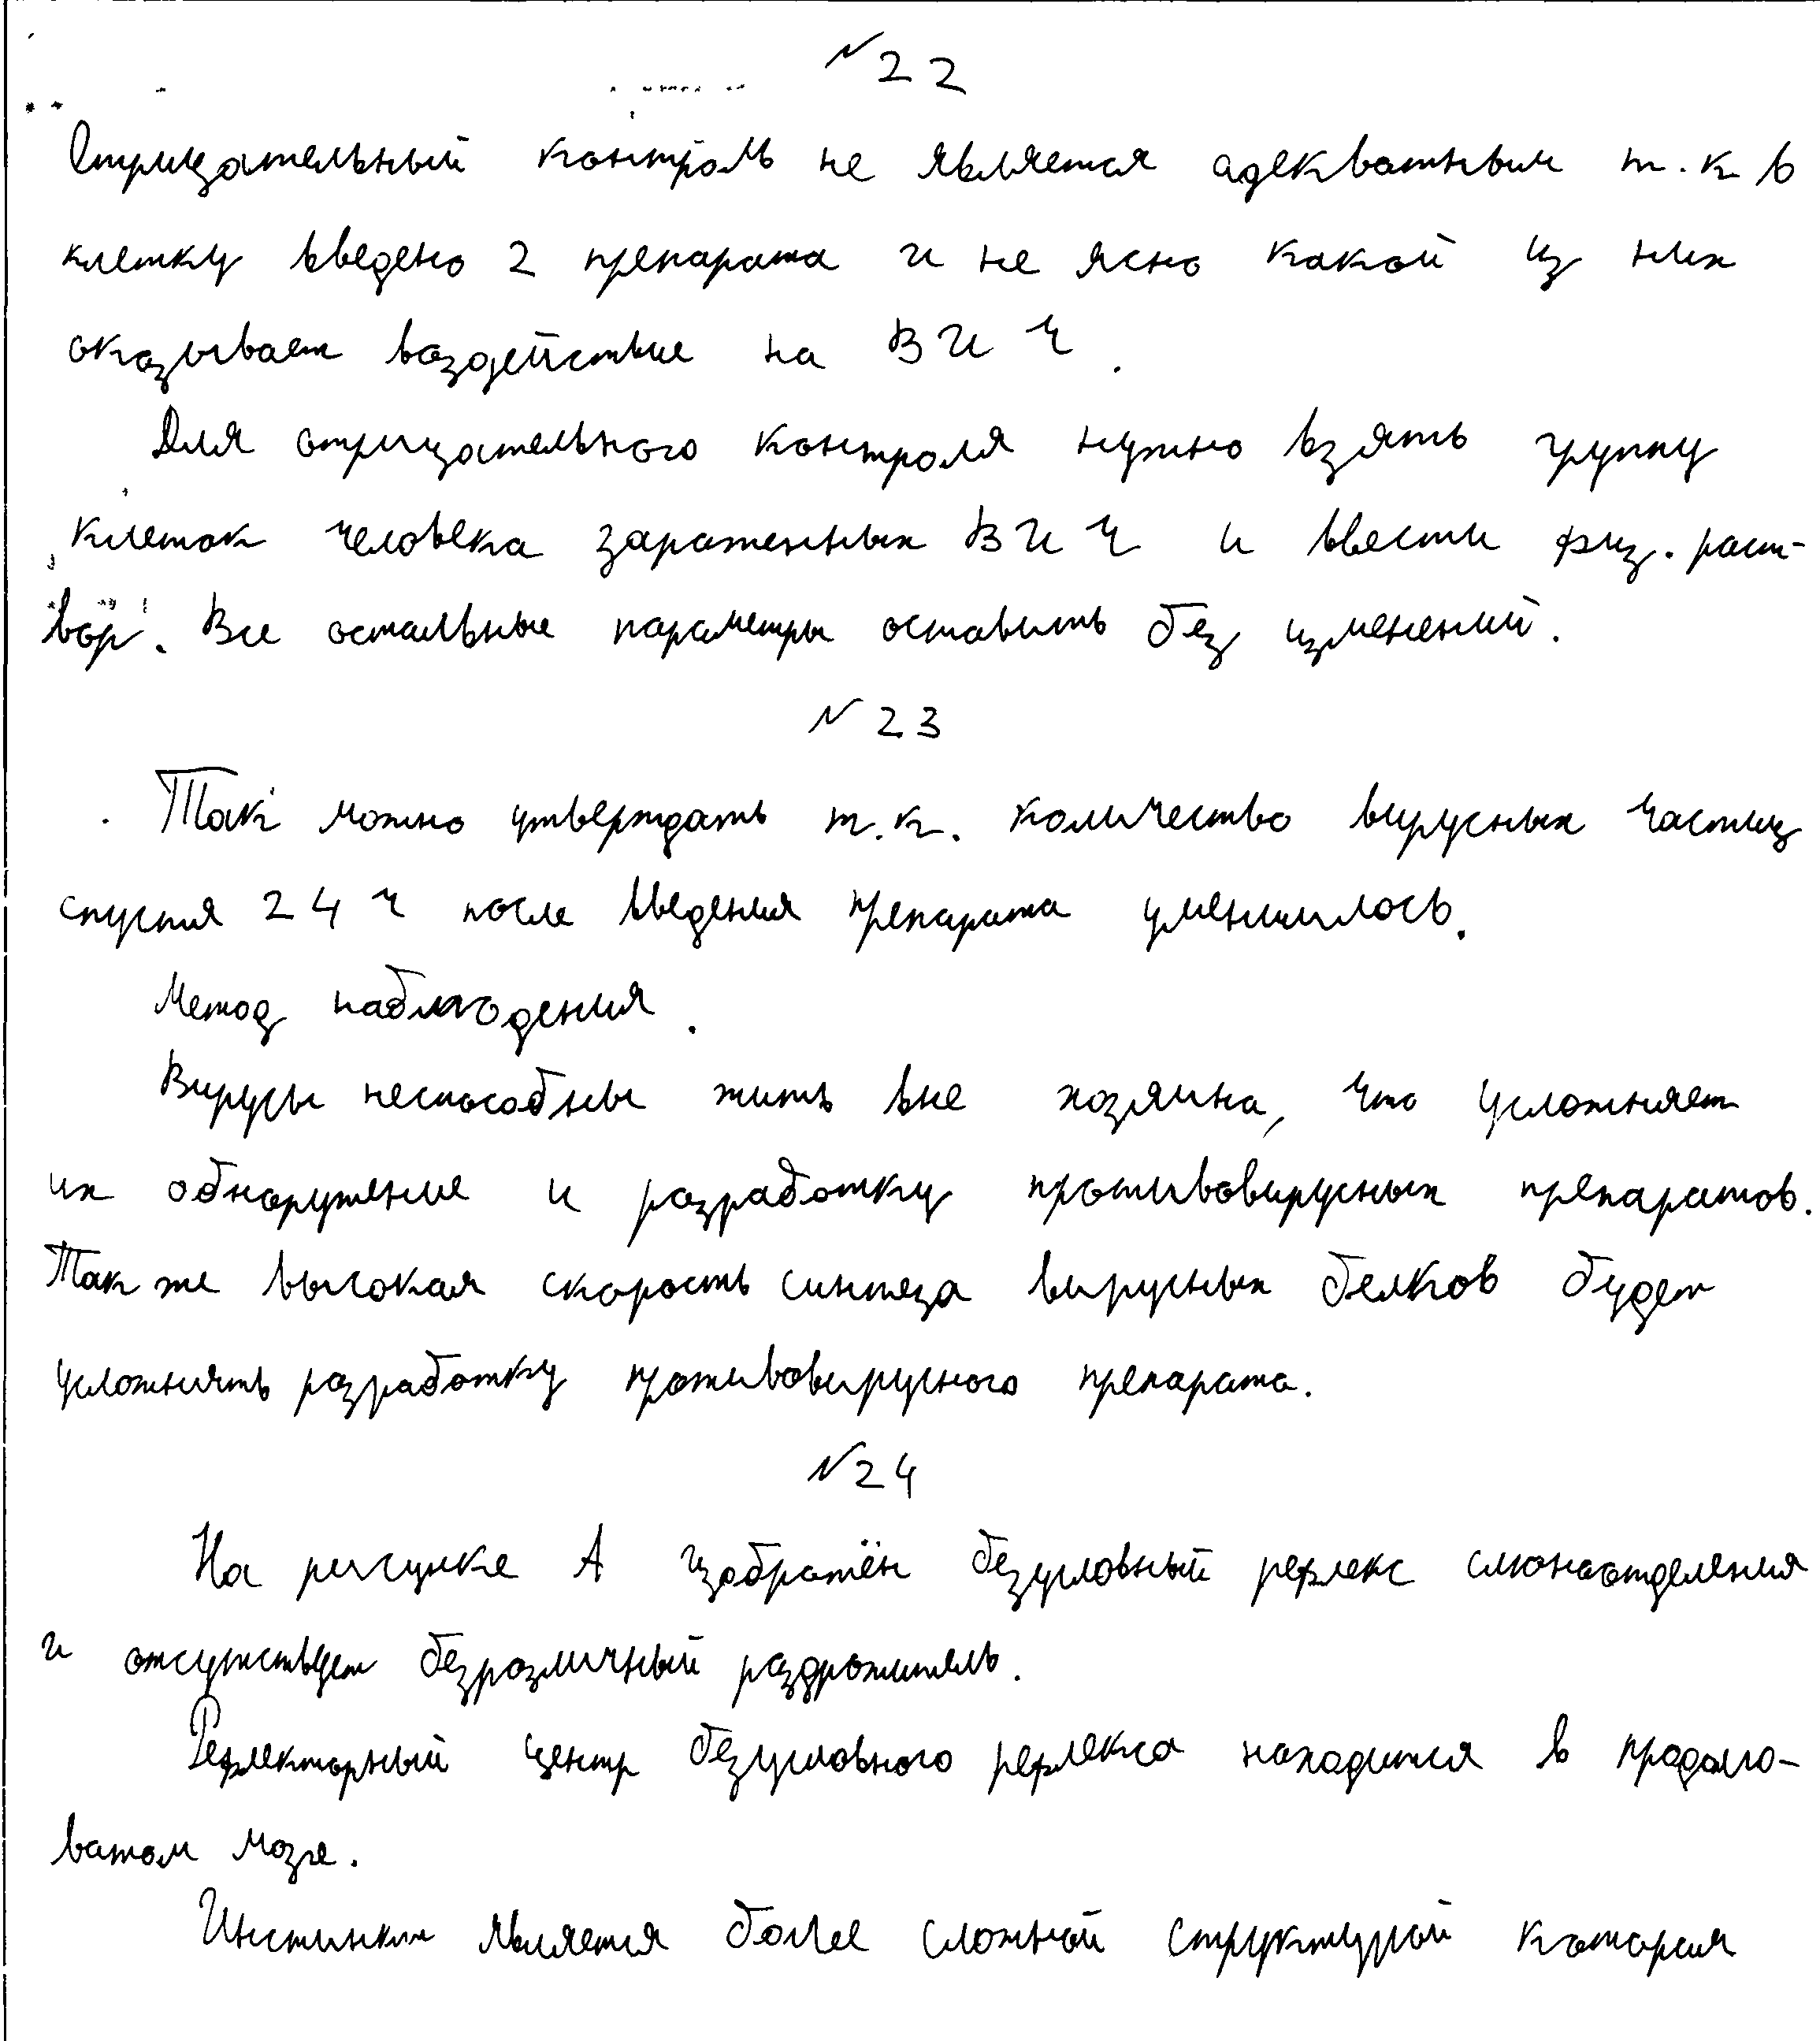 №22
Отрицательный контроль не является адекватным т.к в
клетку введено 2 препарата и не ясно какой из них
оказывает воздействие на ВИЧ.
Для отрицательного контроля нужно взять группу
клеток человека зараженных ВИЧ и ввести физ. раст-
вор. Все остальные параметры оставить без изменений.
№23
Так можно утверждать т.к. количество вирусных частиц
спустя 24 ч после введения препарата уменшилось.
Метод наблюдения.
Вирусы неспособны жить вне хозяина, что усложняет
их обнаружение и разработку противовирусных препаратов.
Так же высокая скорость синтеза вирусных белков будет
усложнять разработку противовирусного препарата.
№24
На рисунке А изображён безусловный рефлекс слюноотделения
и отсутствует безразличный раздражитель.
Рефлекторный центр безусловного рефлекса находится в продолго-
ватом мозге.
Инстинкт является более сложной структурой которая